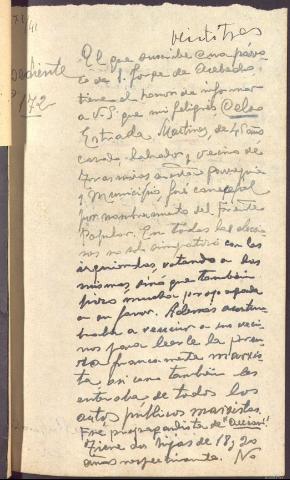 veintitres
71/41
El que suscribe Cura parro
co de S. Jorge de Acebedo,
ediente
tiene el honor de informar
172
a V.S. que mi feligrés Cele
Estrada Martinez, de 45 años
casado, labrador y vecino de
parroquia
y Municipio fué concejal
por nombramiento del Frente
Popular. En todas las eleccio
nes no solo simpatizó con las
izquierdas, votando a las
mismas, sino que también
hizo mucha propaganda
a su favor. Además acostum
braba a reunir a sus veci
nos para leerles la pren
sa francamente marxis
ta, asi como también les
enteraba de todos los
actos públicos marxistas.
Fué propagandista de
Tiene dos hijas de 18 y 20
años respectivamente. No